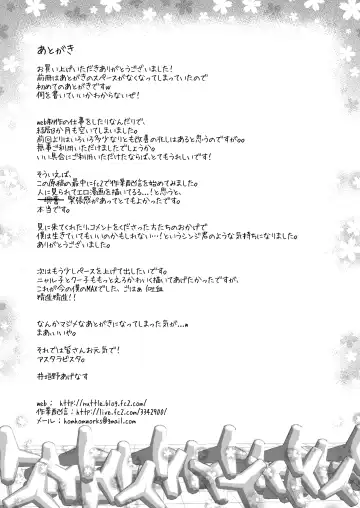 あとがき
お買い上げいただきありがとうございました！
前冊はあとがきのスペースがなくなってしまっていたので
初めてのあとがきですw
何を書いていいかわからないぜ！
web制作の仕事をしたりなんだりで、
結局8か月も空いてしまいました。
前回よりはいろいろ多少なりとも改善の兆しはあると思うのですが。。
無事ご利用いただけましたでしょうか。
いい具合にご利用いただけたならば、とてもうれしいです！
そういえば、
この原稿の最中にfc2で作業配信を始めてみました。
人に見られてエロ漫画を描いてるる…！と思うと、
緊張感があってとてもよかったです。
本当です。
見に来てくれたり、コメントをくださった方たちのおかげで
僕は生きていてもいいのかもしれない…！というシンジ君のような気持ちになりました。
ありがとうございました。
次はもう少しペースを上げて出したいです。
ニャル子とクー子ももっとえろかわいく描いてあげたかったですが、
これが今の僕のMAXでした、ごはぁ（吐血
精進精進！！
なんかマジメなあとがきになってしまった気が...w
まあいいや。
それでは皆さんお元気で！
アスタラビスタ。
野あげなす
web： http://nuttle.blog.fc2.com/
作業配信：http://live.fc2.com/3342988/
メール：homhomworks@gmail.com